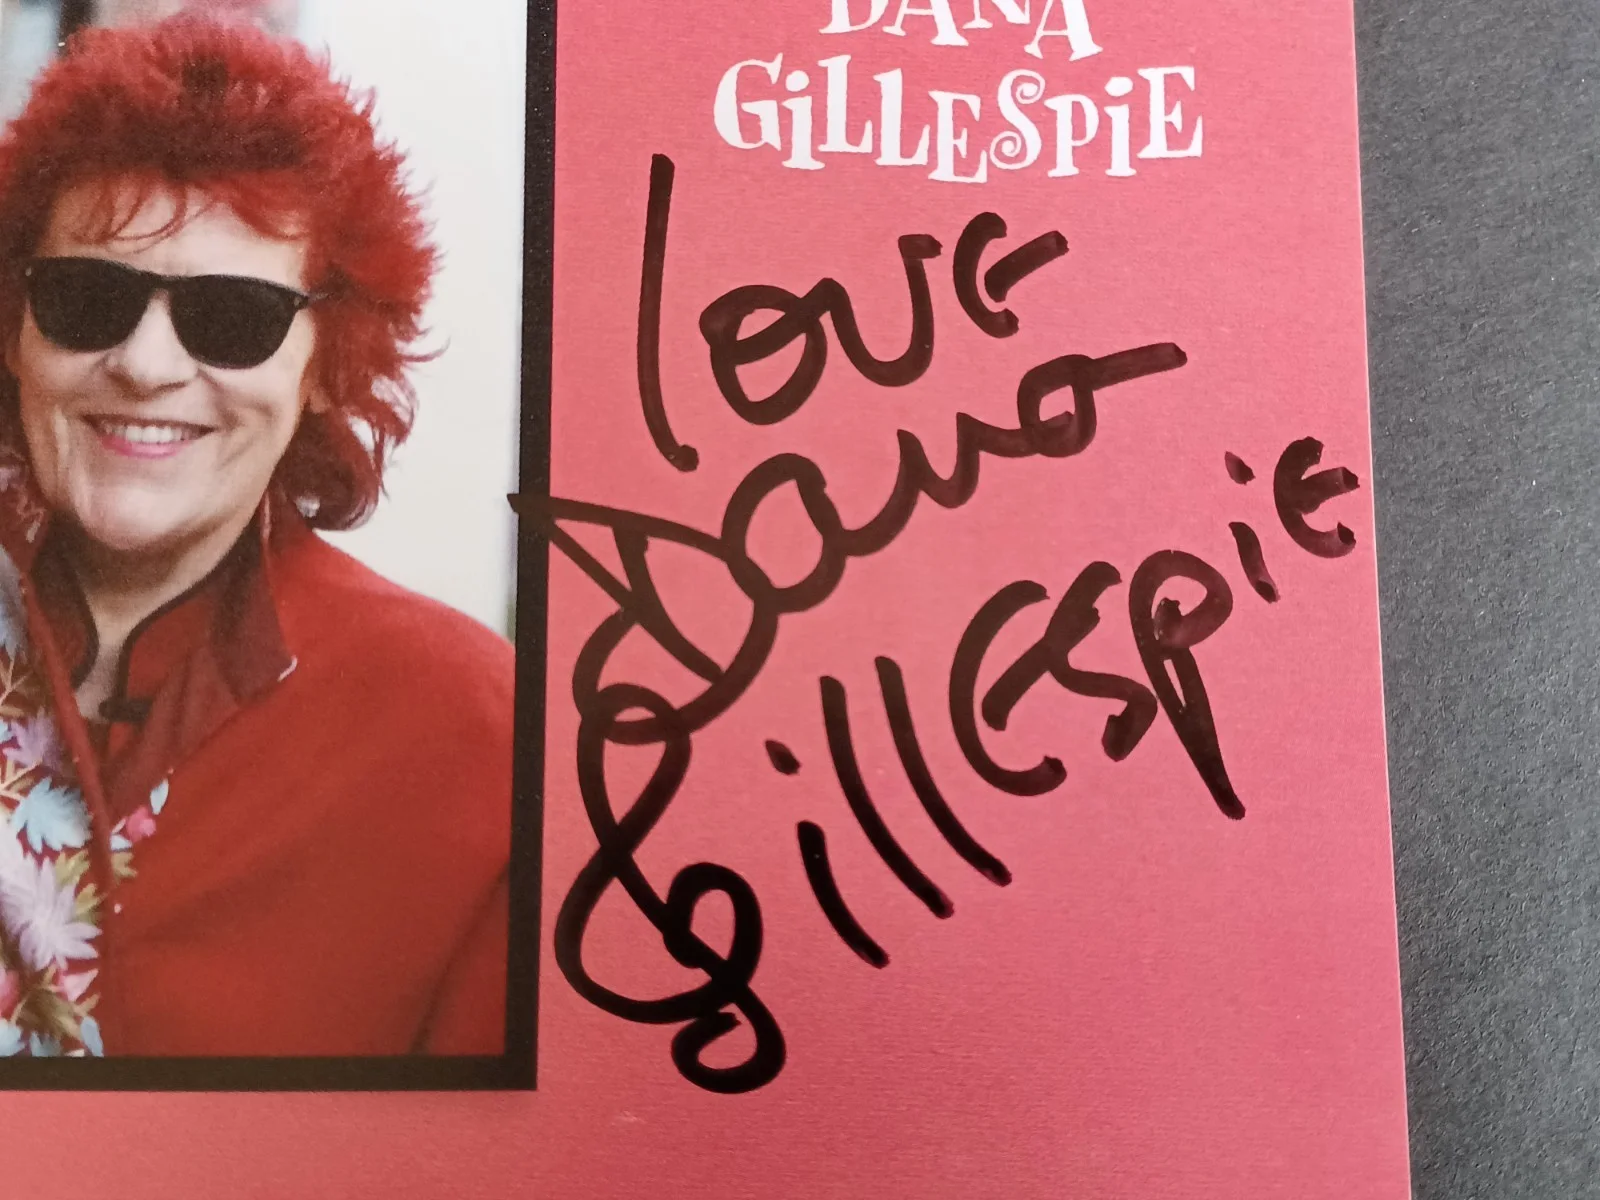 DANA
GiLLESPiE
love
Dana
Gillespie